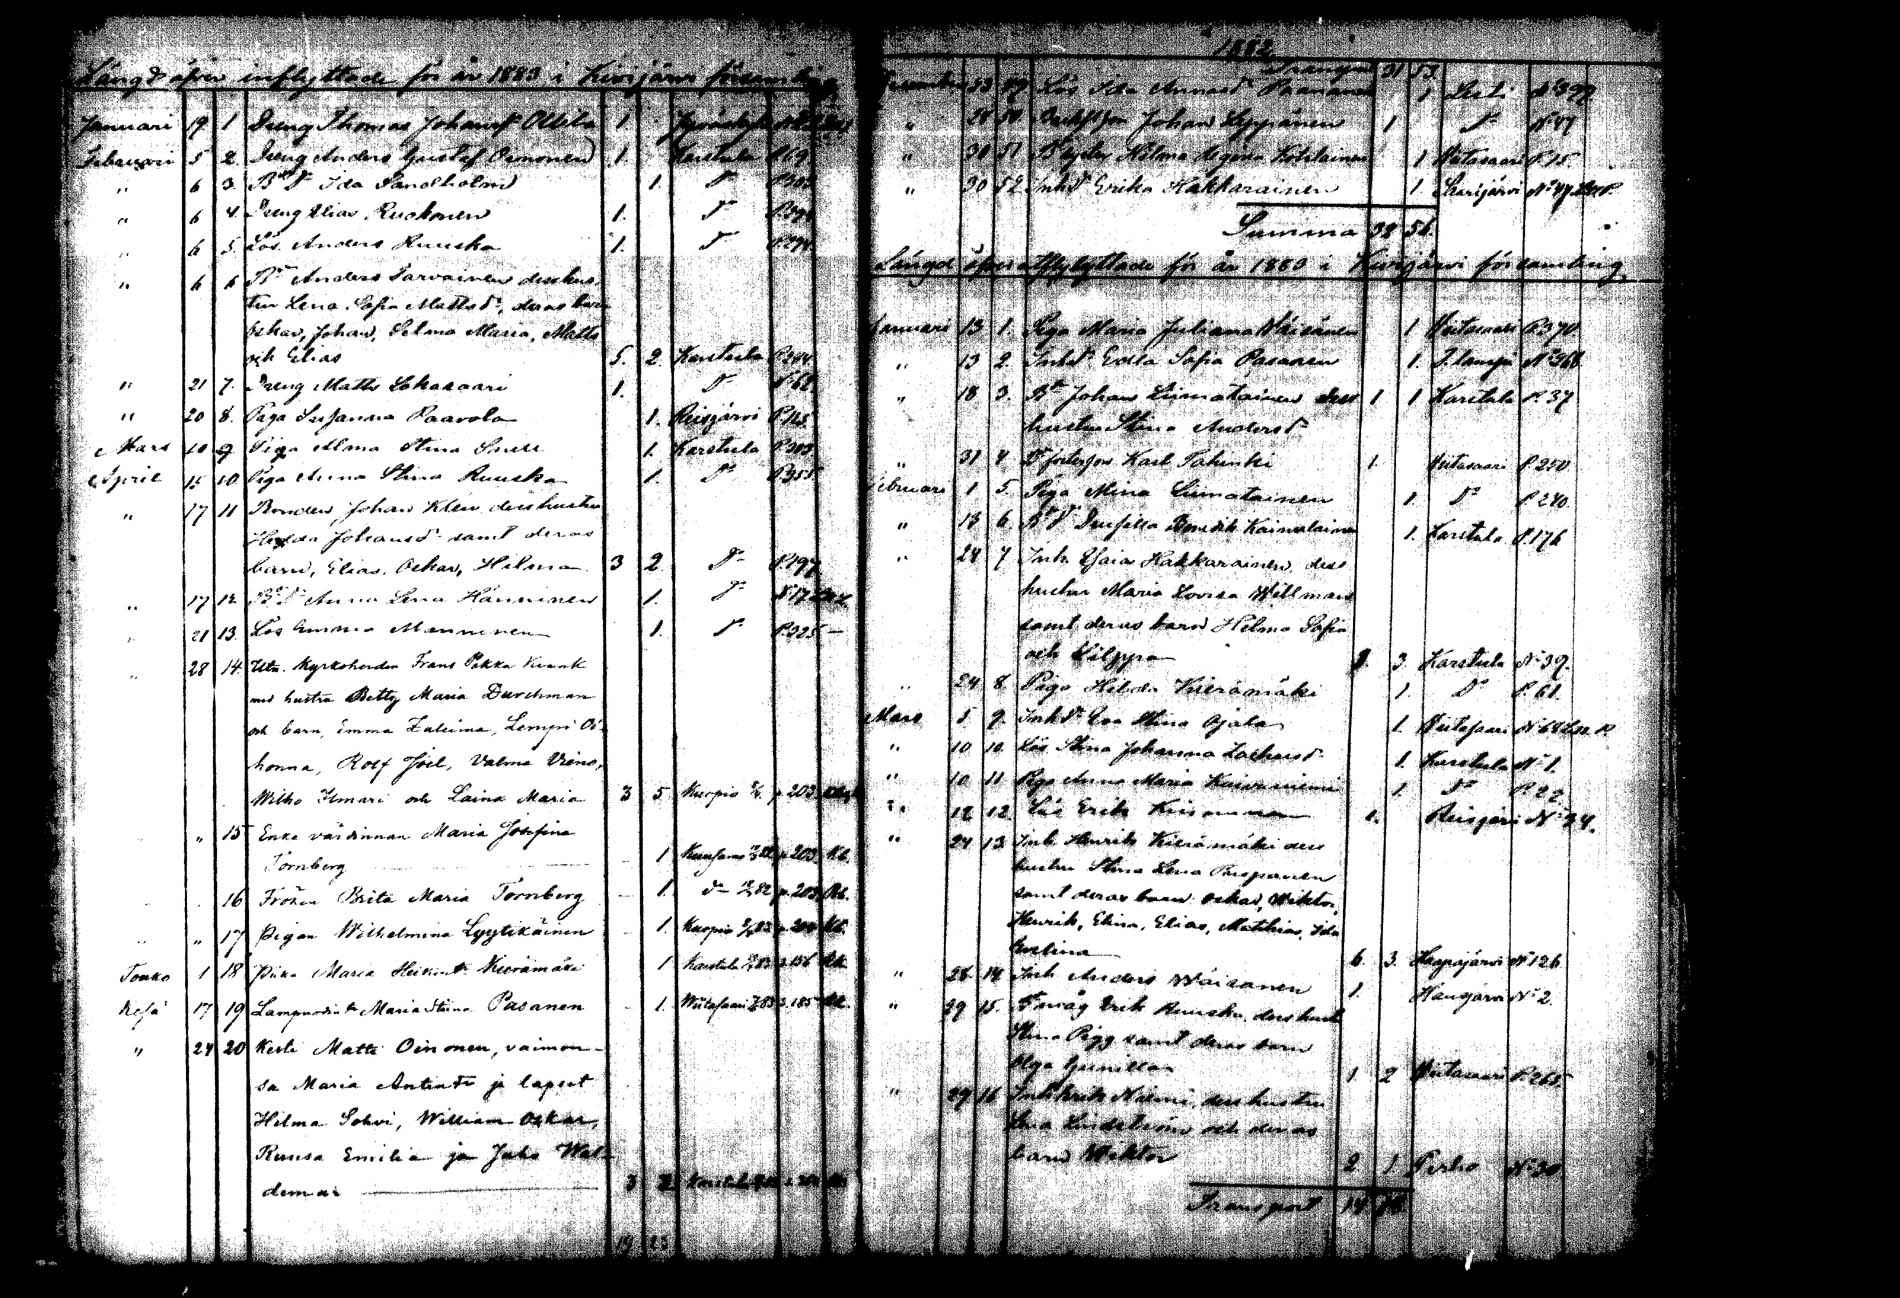 Längd öfver inflyttade för år 1883 i Kivijärvi församling
Januari 19 1 Dreng Thomas Johansson Ollila 1
Februari 5 2. Dreng Anders Gustaf Oinonen 1. Karstula P.69
" 6 3. Bd. Ida Sandholm 1. Do P.303
" 6 4. Dreng Elias Ruokonen 1. Do
" 6 5. Lös. Anders Ruuska 1. Do
" 6 6 Bn Anders Parvainen dess hus-
tru Lena Sofia Mattsdr, deras barn
Oskar, Johan, Selma Maria, Matts
och Elias 5. 2. Karstula P.244
" 21 7. Dreng Matts Lokasaari 1. Do No 62.
" 20 8. Piga Susanna Paavola 1. Reisjärvi P.145.
Mars 10 9. Piga Alma Stina Snell 1. Karstula P.303.
April 15 10. Piga Anna Stina Ruuska 1. Do P.355.
" 17 11 Bonden Johan Klén dess hustru
Hedda Johansdr samt deras
barn, Elias, Oskar, Hilma 3 2. Do P.197
" 17 12. Bd. Anna Lena Hänninen 1. Do No 17
" 21 13. Lös Emma Manninen 1. Do P.325 —
" 28 14. Utn. Kyrkoherden Frans Pekka Kvank
med hustru Betty Maria Durchman
och barn, Emma Zuleima, Lempi Os-
honna, Rolf Joel, Valma Vieno,
Wilho Ilmari och Laina Maria 3 5 Kuopio p. 203
" 15 Enke värdinnan Maria Josefina
Törnberg 1 p. 203. Kb.
16 Fröken Brita Maria Törnberg 1. do p. 203. Kb.
" 17 Pigan Wilhelmina Lyytikäinen 1 Kuopio Kb.
Touko 1 18 Piika Maria Heikint. Kierämäki 1 Karstula s. 156 Kk.
Kesä 17 19 Maria Stiina Pasanen 1. Wiitasaari s. 185
" 24 20 Kesti Matti Oinonen, vaimon-
sa Maria Antint. ja lapset
Hilma Sohvi, William Oskar,
Ruusa Emilia ja Juho Wal-
demar 3 2 Karstula
19 23
1882
Transport 31 53.
December 23 49 Lös Ida Annasdr Paananen 1 Lesti No 399
" 28 50 Johan Leppänen 1 Do No 47
" 30 51 Hilma Regina Kotilainen 1 Viitasaari P.15.
" 30 52 Inhdr Erika Hakkarainen 1. Saarijärvi No 47
Summa 32 56.
Längd öfver afflyttade för år 1883 i Kivijärvi församling.
Januari 13 1. Piga Maria Juliana Väisänen 1 Viitasaari P.370
" 13 2. Inhdr Edla Sofia Pasanen 1. No 368
" 18 3. Bn Johan Liimatainen dess 1 1 Karstula P.37
hustru Stina Andersdr
" 31 4 Do fostersson Karl Pakinki 1. Viitasaari P.250
Februari 1 5. Piga Mina Liimatainen 1. Do P.240.
" 13 6. Bd. Drusilla Benedikt. Kainulainen 1. Karstula P.176
" 24 7 Inh. Esaias Hakkarainen, dess
hustru Maria Lovisa Willman
samt deras barn Hilma Sofia
och Wilppa 1. 3. Karstula No 39.
" 24 8. Piga Hilda Kierämäki 1. Do P.61.
Mars 5 9. Inhdr Eva Stina Ojala 1. Viitasaari No 68
" 10 10. Lös Stina Johanna Zachrisdr 1. Karstula No 1.
" 10 11 Piga Anna Maria Koivuniemi 1 Do P.22
" 12 12. Lös Erik Kinnunen 1. Reisjärvi No 34.
" 24 13 Inh. Henrik Kierämäki dess
hustru Stina Lena Piispanen
samt deras barn Oskar, Wiktor,
Henrik, Elina, Elias, Mathias, Ida
Evelina 6. 3. Haapajärvi No 126
" 28 14. Inh Anders Väisänen 1. No 2.
" 29 15. Erik Ruuska, dess hustru
Stina Pigg samt deras barn
Olga Gunilla 1 2 Viitasaari P.265.
" 29 16 Inh Erik Niemi, dess hustru
Lena Lindström och deras
barn Wiktor 2 1 Perho No 30
Transport 14